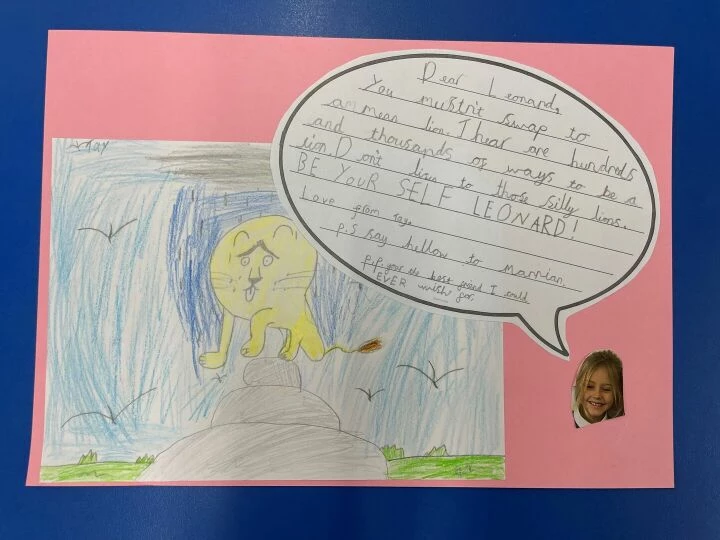 Dear Leonard,
You mustn't swap to
a mean lion. Thear are hundreds
and thousands of ways to be a
lion. Don't lisen to those silly lions.
BE YOUR SELF LEONARD!
Love from
p.s say hellow to Marrian.
p.p.s your the best friend I could
EVER wish for.